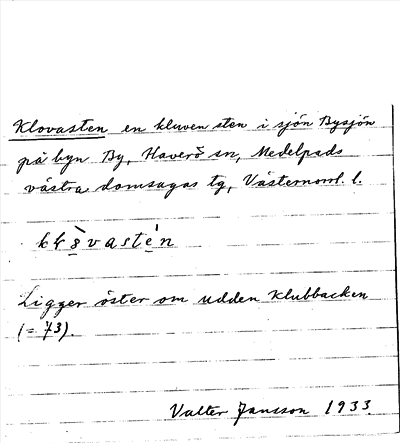 Klovasten en kluven sten i sjön Bysjön
på byn By, Haverö sn, Medelpads
västra domsagas tg, Västernorrl. l.
Ligger öster om udden Klubbacken
(= 73).
Valter Jansson 1933.